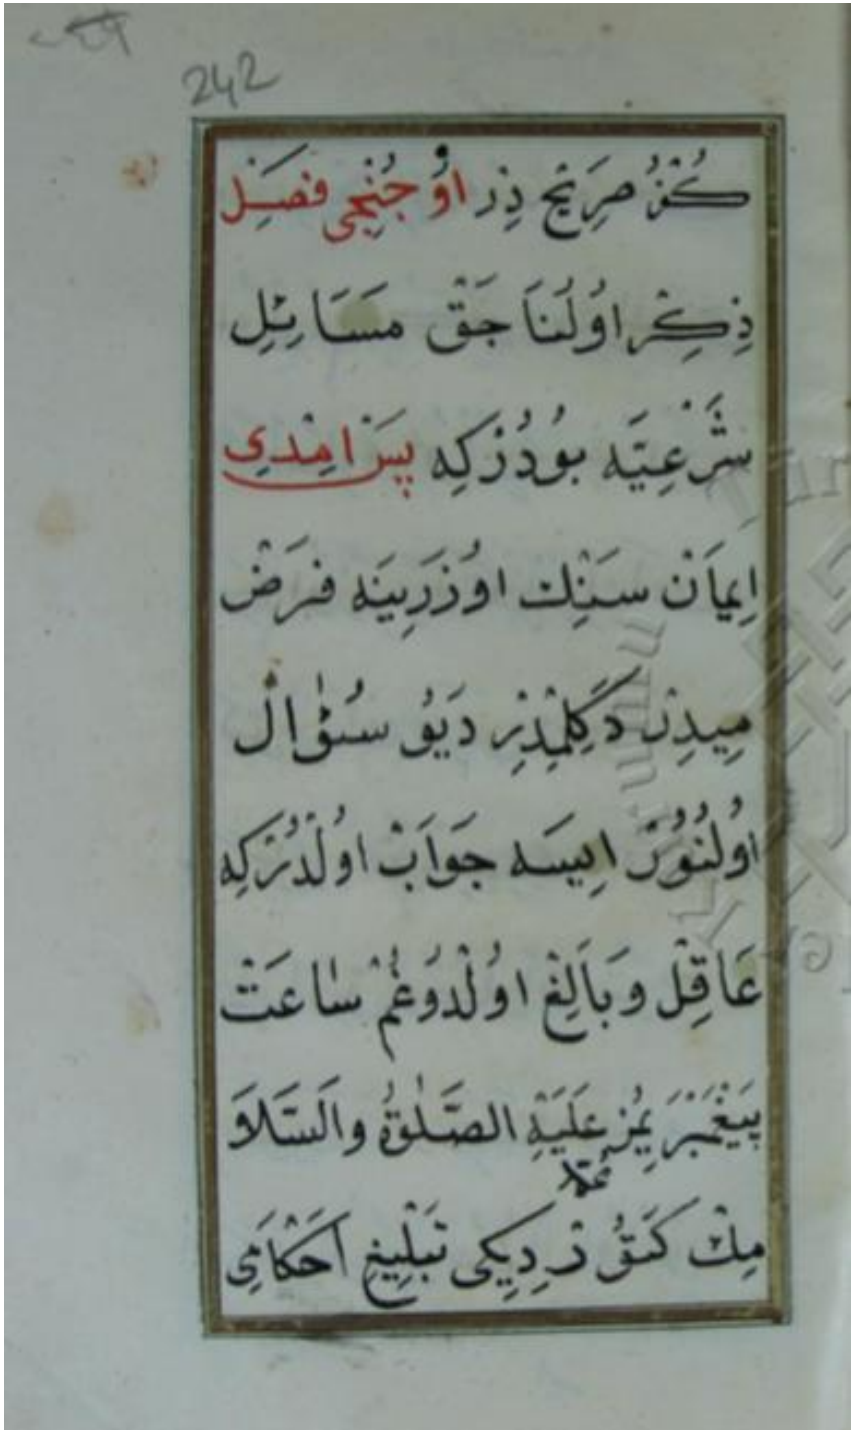 242
كُفْرُ صَرِيحْ دِرْ اوُچُنْجِى فَصِلْ
ذِكِرْ اوُلُنَاجَقْ مَسَائِلِ
شَرْعِيَّه بُودُرْكِه پَسْ اِمْدِى
اِيمَانْ سَنِڭ اوُزَرِينَه فَرَضْ
مِيدِرْ دَكِلْمِدِرْ دَيُو سُؤٰالْ
اوُلُنُورْ اِيسَه جَوَابْ اوُلْدُرْكِه
عَاقِلْ وَبَالِغْ اوُلْدُوغُمْ سٰاعَتْ
پَيْغَمْبَرِيمُزْ عَلَيْهِ الصَّلٰوةُ وَالسَّلَا
مِڭْ كَتُورْدِيكِى تَبْلِيغِ اَحْكَامِى